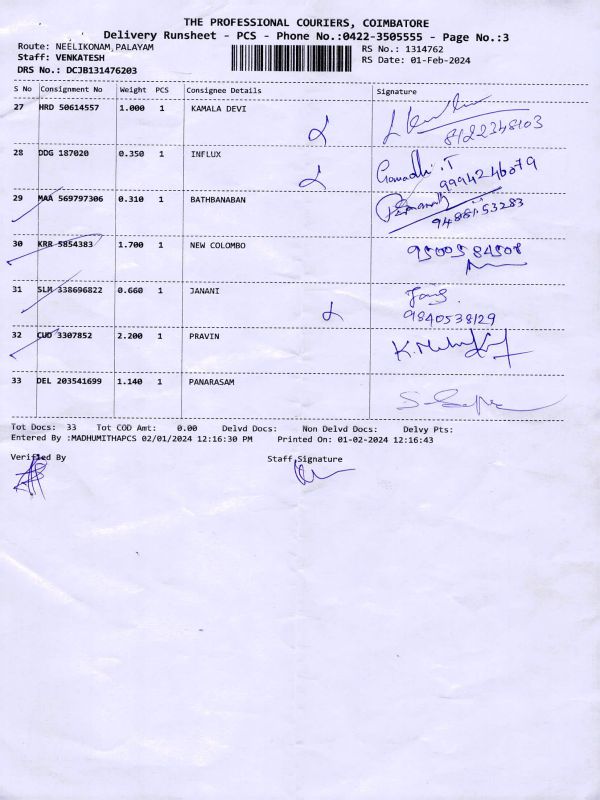 THE PROFESSIONAL COURIERS, COIMBATORE
Delivery Runsheet - PCS - Phone No.:0422-3505555 - Page No.:3
Route: NEELIKONAM PALAYAM RS No.: 1314762
Staff: VENKATESH RS Date: 01-Feb-2024
DRS No.: DCJB131476203
S No Consignment No Weight PCS Consignee Details Signature
27 HRD 50614557 1.000 1 KAMALA DEVI
8122348103
28 DDG 187020 0.350 1 INFLUX
9994246079
29 MAA 569797306 0.310 1 BATHBANABAN
9488153283
30 KRR 5854383 1.700 1 NEW COLOMBO 9500584508
31 SLM 338696822 0.660 1 JANANI
9840538129
32 CUD 3307852 2.200 1 PRAVIN
33 DEL 203541699 1.140 1 PANARASAM
Tot Docs: 33 Tot COD Amt: 0.00 Delvd Docs: Non Delvd Docs: Delvy Pts:
Entered By :MADHUMITHAPCS 02/01/2024 12:16:30 PM Printed On: 01-02-2024 12:16:43
Verified By Staff Signature